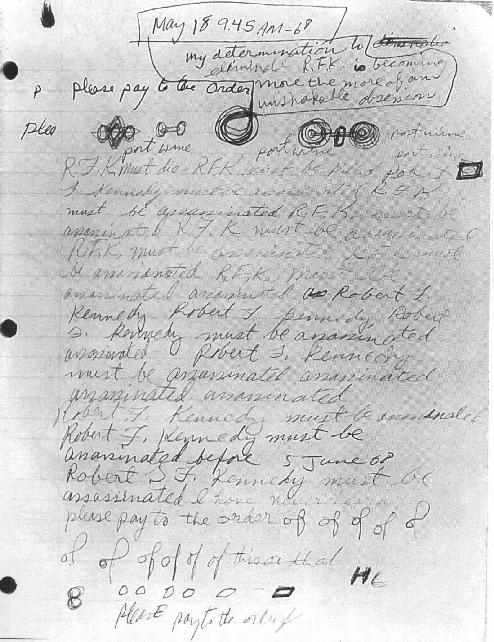 May 18 9.45 AM-68
my determination to
eliminate R.F.K. is becoming
please pay to the order more the more of an
unshakable obsession
port wine port wine port wine
R.F.K. must die - RFK must be killed Robert
F. Kennedy must be assassinated R.F.K.
must be assassinated R.F.K. must be
assassinated R.F.K must be assassinated
R.F.K. must be assassinated R.F.K. must
be assassinated R.F.K. must be
assassinated assassinated Robert F.
Kennedy Robert F. Kennedy Robert
F. Kennedy must be assassinated
assassinated Robert F. Kennedy
must be assassinated assassinated
assassinated assassinated
Robert F. Kennedy must be assassinated
Robert F. Kennedy must be
assassinated before 5 June 68
Robert F. Kennedy must be
assassinated I have never heard
please pay to the order of of of of of
of of of of of of this or that
8 00 00
please pay to the order of